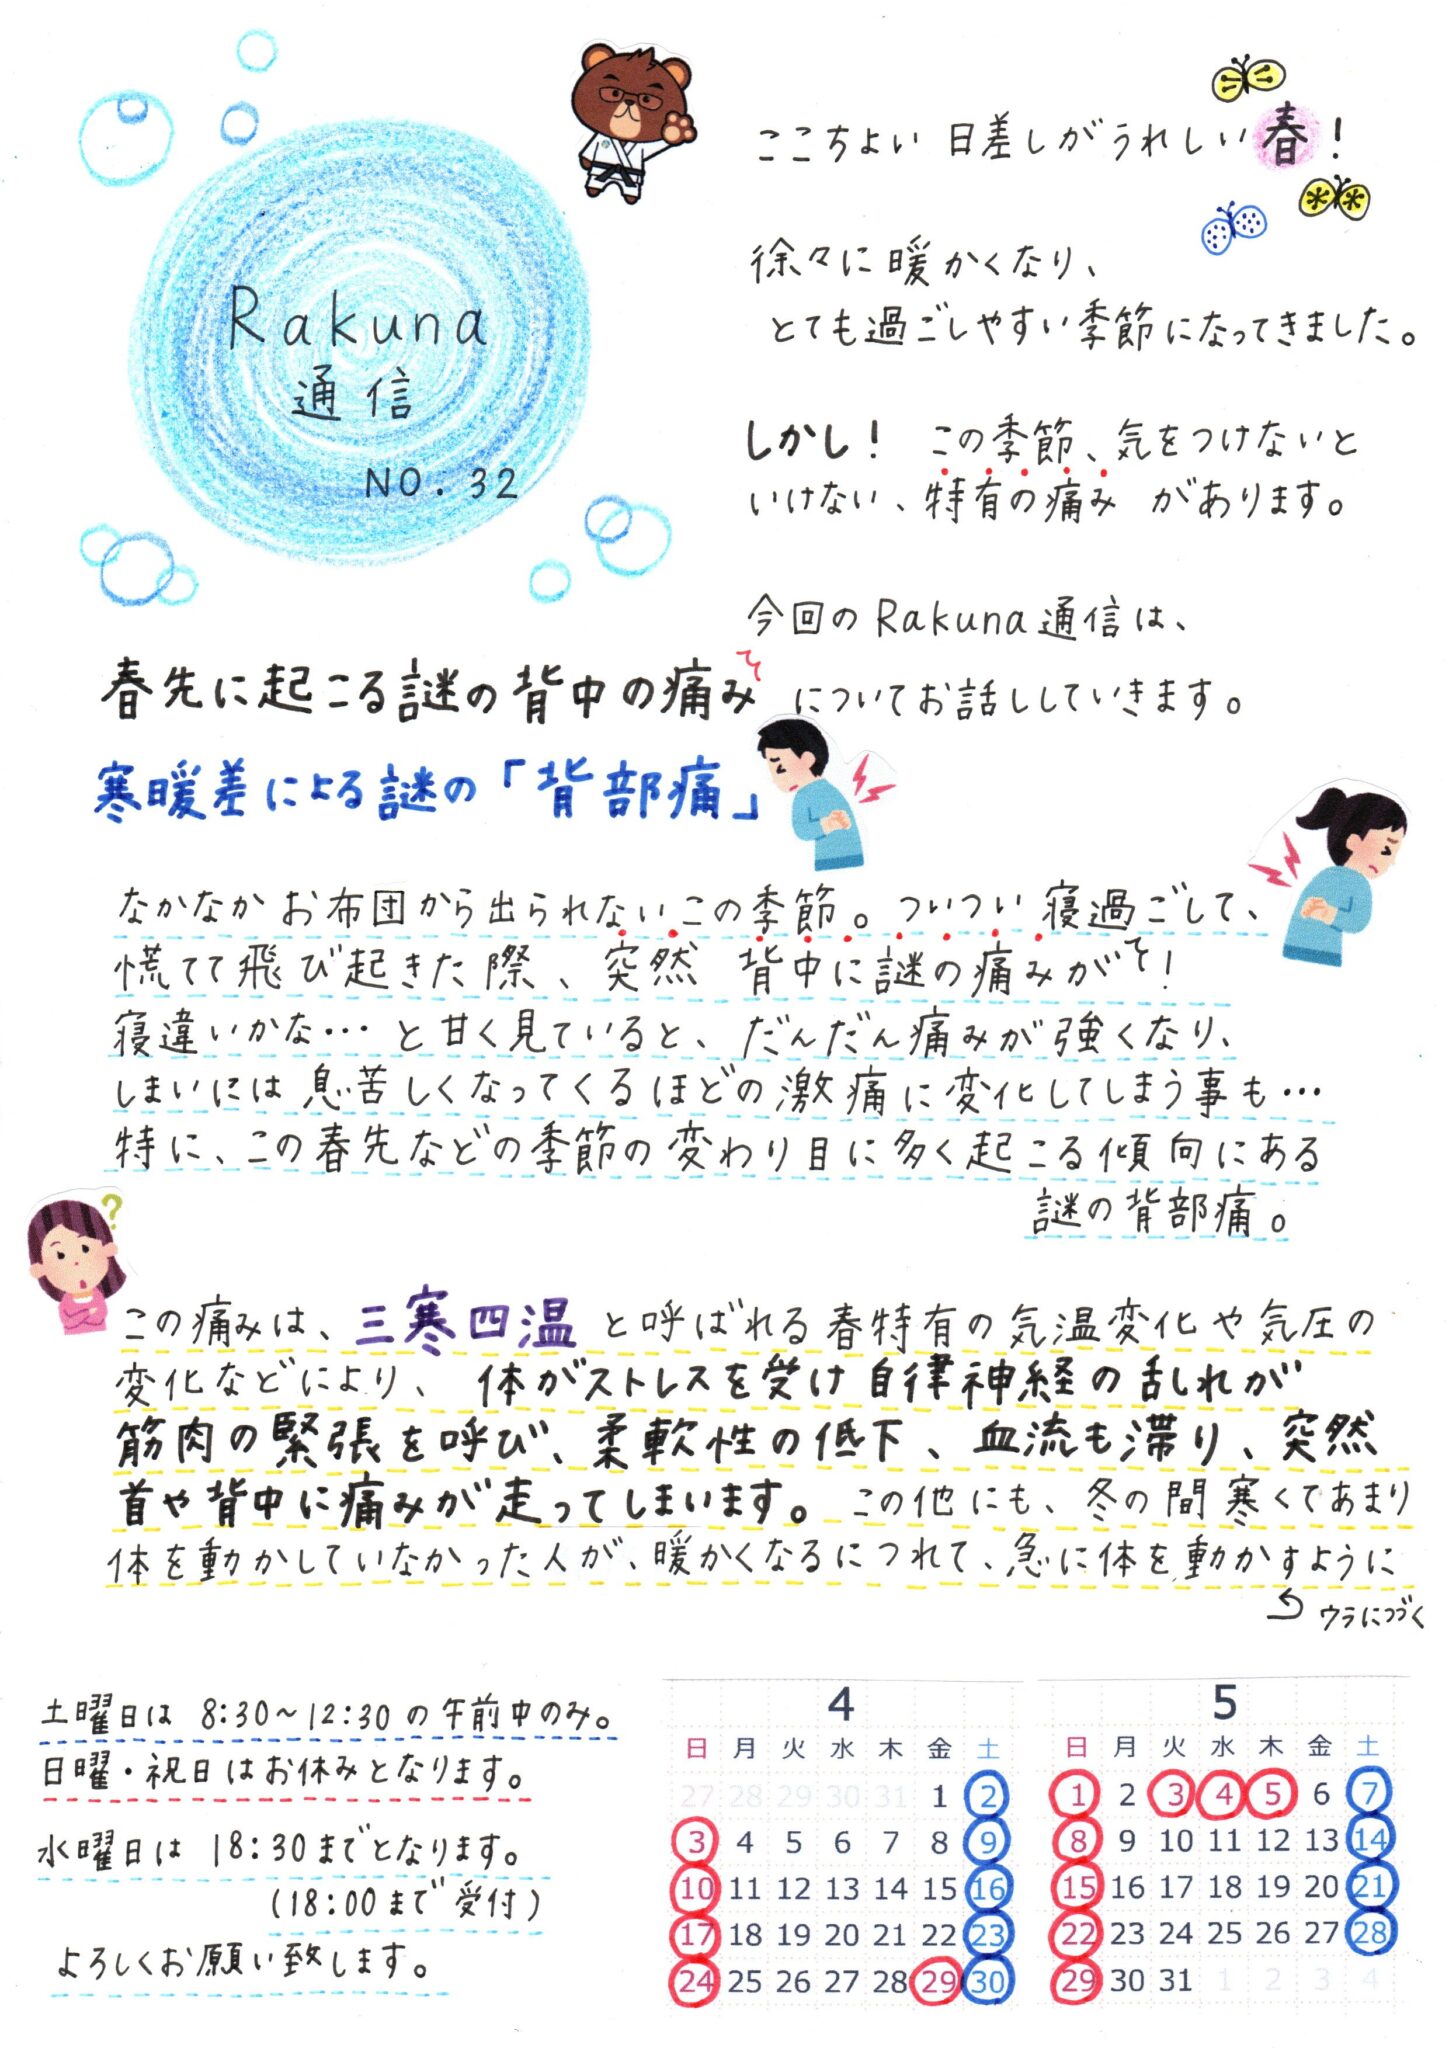 Rakuna
通信
NO. 32
ここちよい日差しがうれしい春！
徐々に暖かくなり、
とても過ごしやすい季節になってきました。
しかし！ この季節、気をつけないと
いけない、特有の痛み があります。
今回のRakuna通信は、
春先に起こる謎の背中の痛み についてお話ししていきます。
寒暖差による謎の「背部痛」
なかなかお布団から出られないこの季節。ついつい寝過ごして、
慌てて飛び起きた際、突然 背中に謎の痛みが！
寝違いかな…と甘く見ていると、だんだん痛みが強くなり、
しまいには息苦しくなってくるほどの激痛に変化してしまう事も…
特に、この春先などの季節の変わり目に多く起こる傾向にある
謎の背部痛。
?
この痛みは、三寒四温と呼ばれる春特有の気温変化や気圧の
変化などにより、体がストレスを受け自律神経の乱れが
筋肉の緊張を呼び、柔軟性の低下、血流も滞り、突然
首や背中に痛みが走ってしまいます。この他にも、冬の間寒くてあまり
体を動かしていなかった人が、暖かくなるにつれて、急に体を動かすように
ウラにつづく
土曜日は 8:30〜12:30の午前中のみ。
日曜・祝日はお休みとなります。
水曜日は 18:30までとなります。
(18:00まで受付)
よろしくお願い致します。
4
日 月 火 水 木 金 土
27 28 29 30 31 1 2
3 4 5 6 7 8 9
10 11 12 13 14 15 16
17 18 19 20 21 22 23
24 25 26 27 28 29 30
5
日 月 火 水 木 金 土
1 2 3 4 5 6 7
8 9 10 11 12 13 14
15 16 17 18 19 20 21
22 23 24 25 26 27 28
29 30 31 1 2 3 4